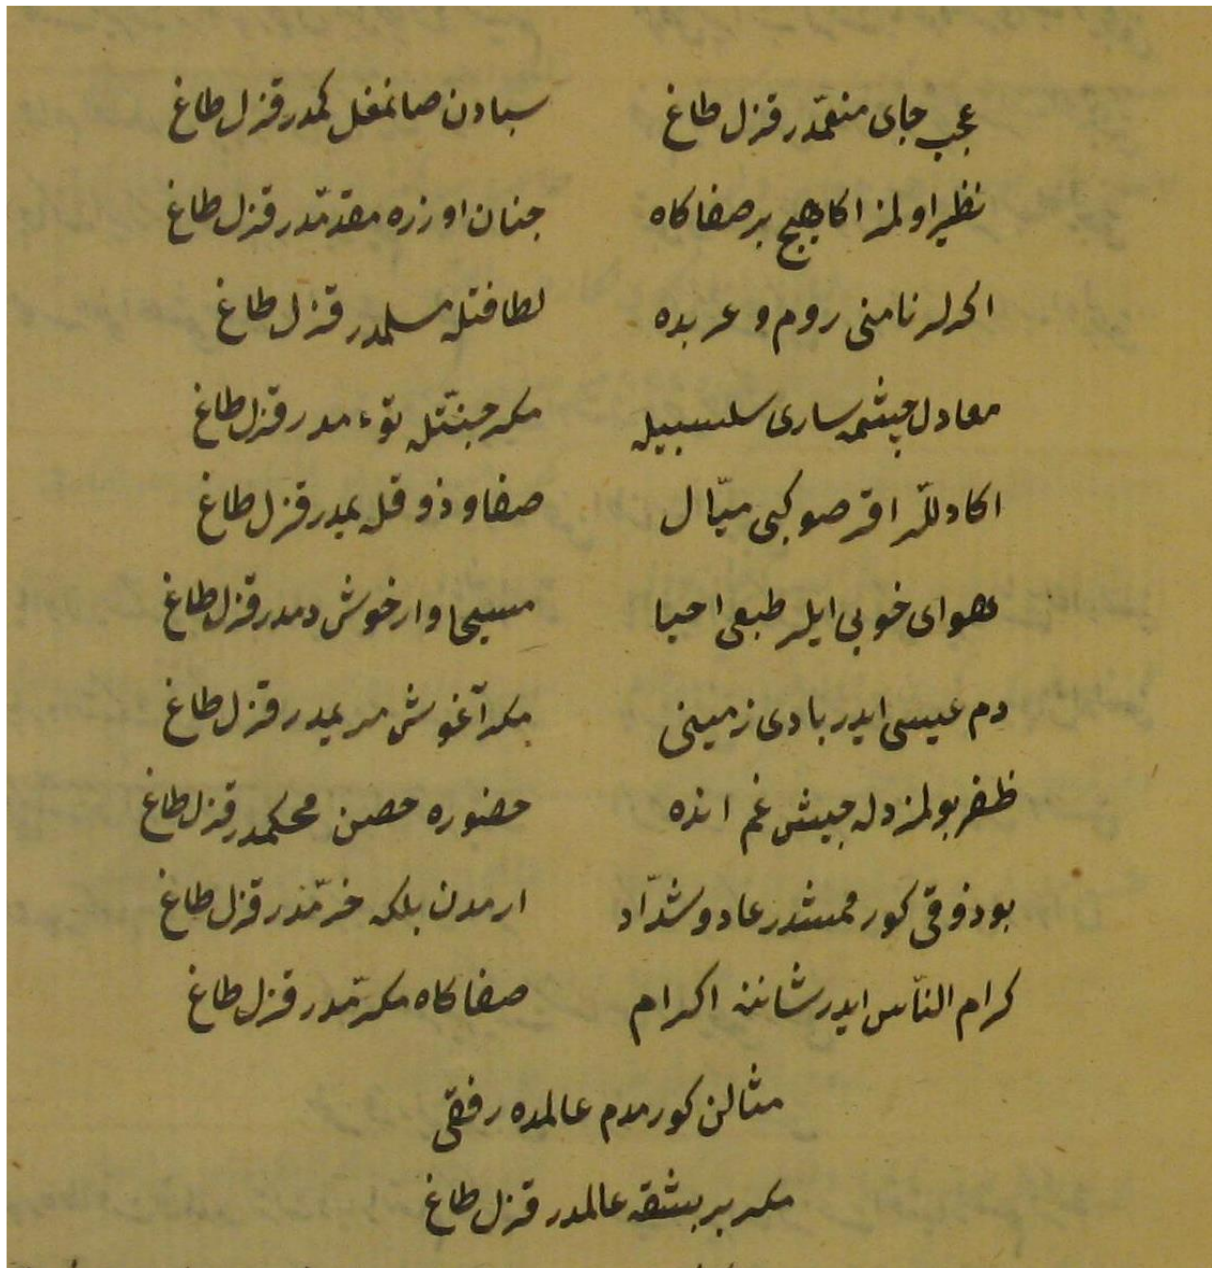 عجب جای منعمدر قزل طاغ سبادن صانمغل كمدر قزل طاغ
نظیر اولمز اكا هیچ بر صفا كاه جنان اوزره مقدمدر قزل طاغ
اكرلر نامنی روم و عربده لطافتله مسلمدر قزل طاغ
معادل چشمه ساری سلسبیله مكر جنتله توءمدر قزل طاغ
اكا دللر اقر صو كبی میّال صفا و ذوقله یمدر قزل طاغ
هوای خوبی ایلر طبعی احیا مسیحا وار خوش دمدر قزل طاغ
دم عیسی ایدر بادی زمینی مكر آغوش مریمدر قزل طاغ
ظفر بولمز دله جیش غم انده حضوره حصن محكمدر قزل طاغ
بو ذوقی كورممشدر عاد و شدّاد ارمدن بلكه خرّمدر قزل طاغ
كرام النّاس ایدر شاننه اكرام صفا كاه مكرّمدر قزل طاغ
مثالن كورمدم عالمده رفقی
مكر بر بشقه عالمدر قزل طاغ